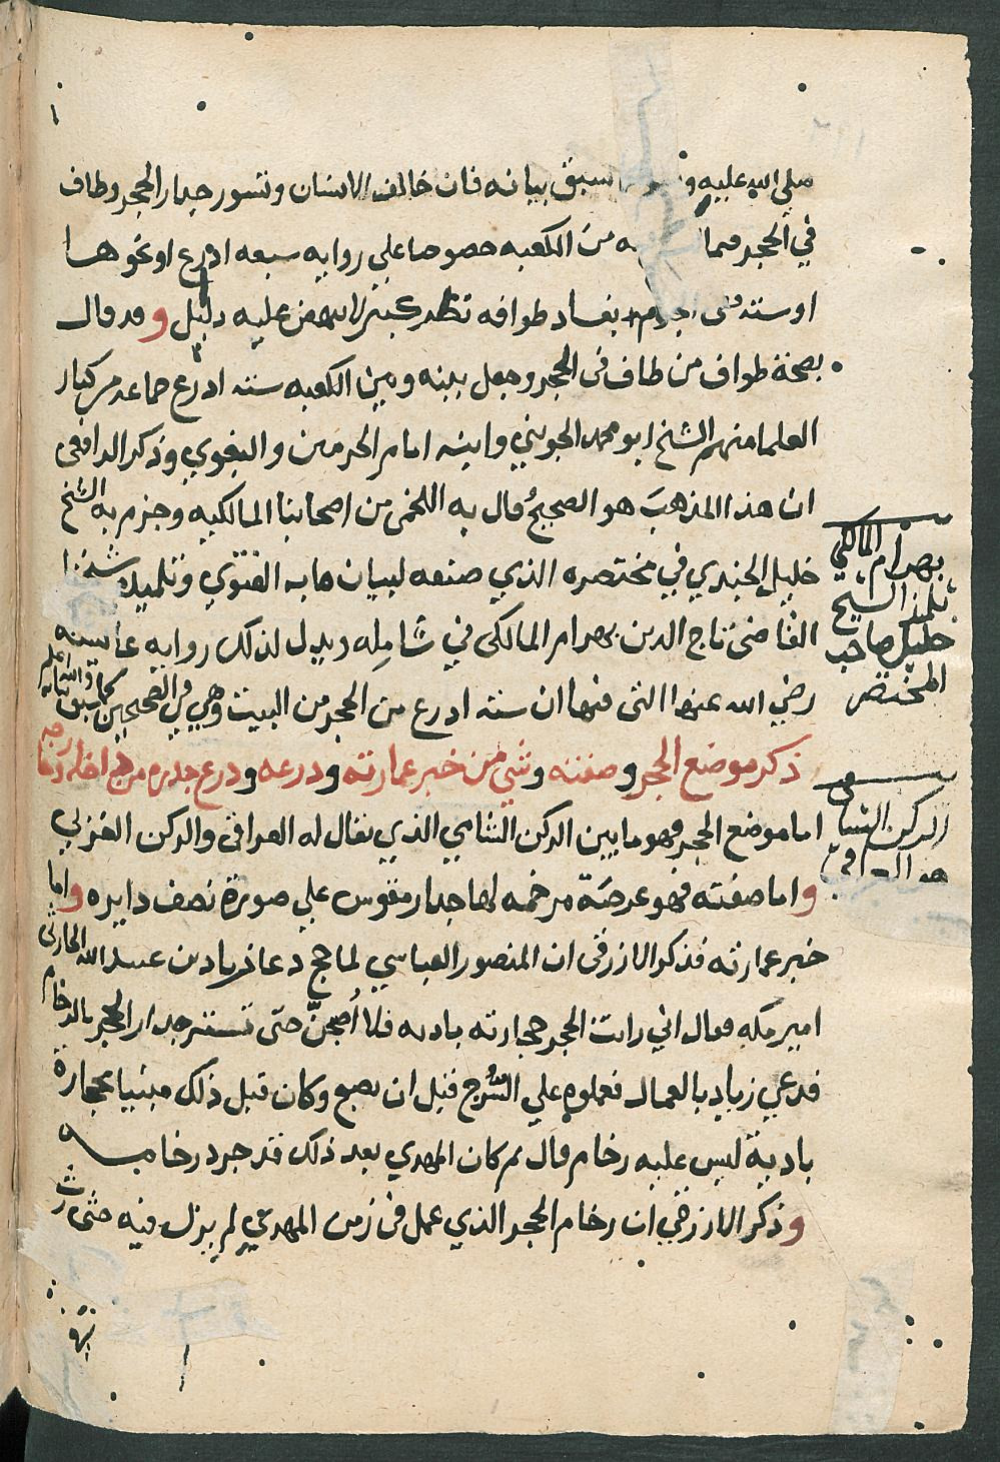 صلي الله عليه سبق بيانه فان خالف الانسان وتسور جدار الحجر وطاف
في الحجر فيما من الكعبه خصوصا علي روايه سبعه اذرع او نحوها
او سته بفساد طوافه نظر كبير لا ينهض عليه دليل وقد قال
بصحة طواف من طاف في الحجر وجعل بينه وبين الكعبه سته اذرع جماعه من كبار
العلما منهم الشيخ ابو محمد الجويني وابنه امام الحرمين والبغوي وذكر الرافعي
ان هذا المذهب هو الصحيح وقال به اللخمي من اصحابنا المالكيه وجزم به الشيخ
خليل الجندي في مختصره الذي صنفه لبيان ما به الفتوي وتلميذه شيخنا
القاضي تاج الدين بهرام المالكي في شامله ويدل لذلك روايه عايشه
رضي الله عنها التي فيها ان سته اذرع من الحجر من البيت وهي في الصحيحين كما سبق بيانه والله اعلم
ذكر موضع الحجر وصفته وشي من خبر عمارته وذرعه وذرع جدره من داخله وخارجه
اما موضع الحجر فهو ما بين الركن الشامي الذي يقال له العراقي والركن الغربي
واما صفته فهو عرصة مرخمه لها جدار مقوس علي صورة نصف دايره واما
خبر عمارته فذكر الازرقي ان المنصور العباسي لما حج دعا زياد بن عبيد الله الحارثي
امير مكه فقال اني رايت الحجر حجارته باديه فلا اُصبحنّ حتي تستر جدار الحجر بالرخام
فدعي زياد بالعمال فعملوه علي السُرج قبل ان يصبح وكان قبل ذلك مبنيا بحجارة
بادية ليس عليه رخام قال ثم كان المهدي بعد ذلك قد جرد رخامه
وذكر الازرقي ان رخام الحجر الذي عمل في زمن المهدي لم يزل فيه حتي رث
بهرام المالكي
تلميذ الشيخ
خليل صاحب
المختصر
الركن الشامي
هو العراقي